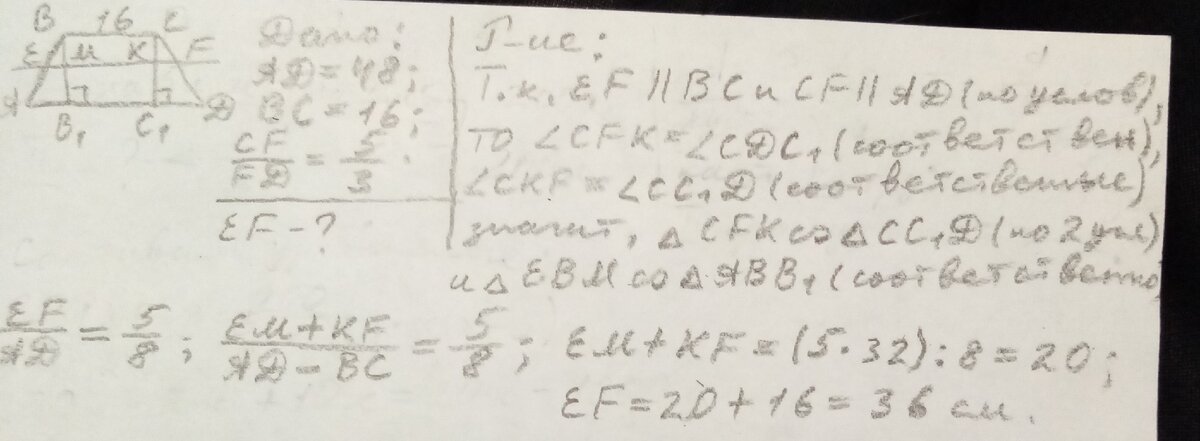 B 16 C
E M K F
A B₁ C₁ D
Дано:
AD = 48;
BC = 16;
CF/FD = 5/3.
EF - ?
Р-ие:
Т.к. EF || BC и CF || AD (по услов),
то ∠CFK = ∠CDC₁ (соответствен),
∠CKF = ∠CC₁D (соответственные)
значит, △ CFK ∾ △ CC₁D (по 2 угл)
и △ EBM ∾ △ ABB₁ (соответственно)
EF/AD = 5/8; (EM + KF)/(AD - BC) = 5/8; EM + KF = (5·32):8 = 20;
EF = 20 + 16 = 36 см.